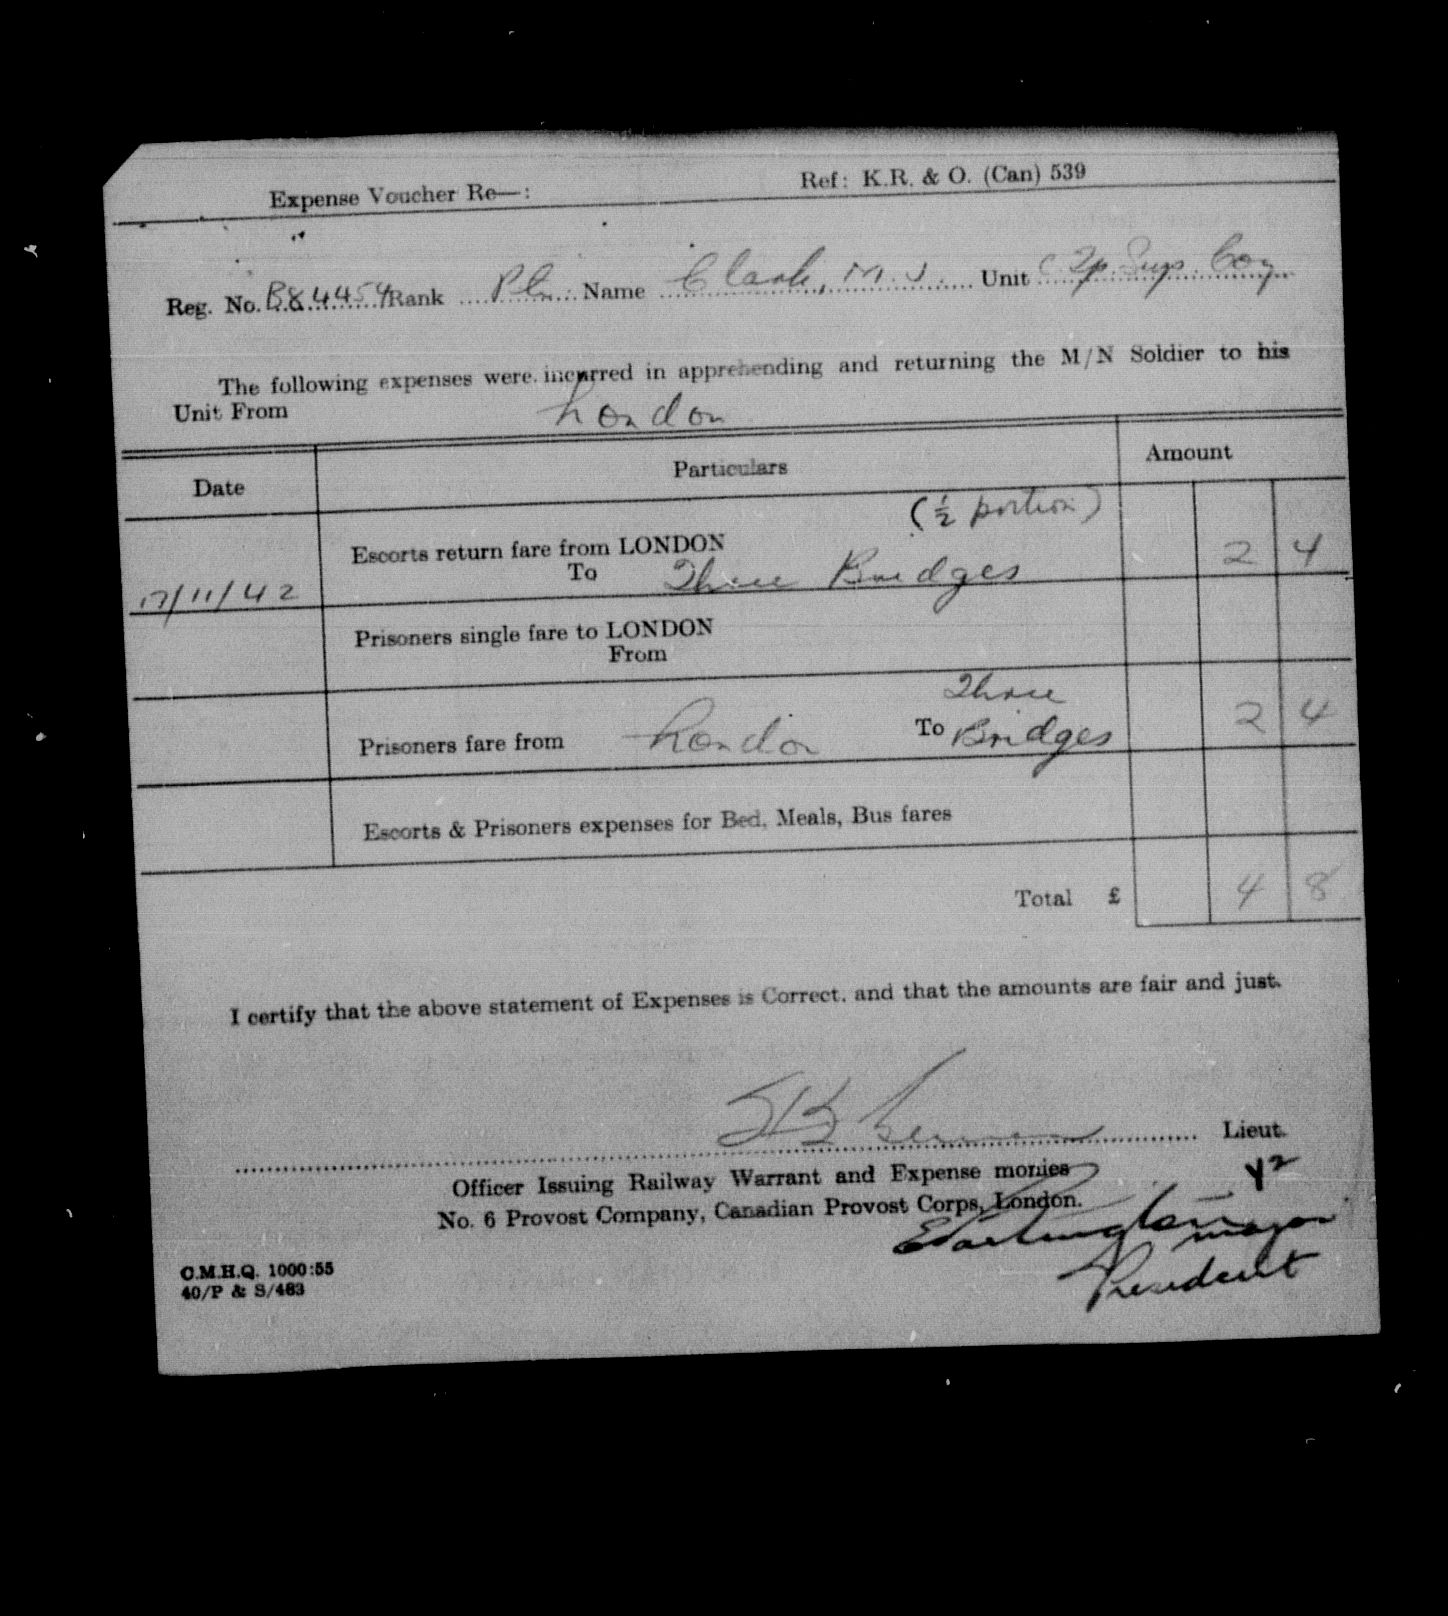 Expense Voucher Re—: Ref: K.R. & O. (Can) 539
Reg. No. B84454 Rank Pte Name Clark, M. J. Unit Coy
The following expenses were incurred in apprehending and returning the M/N Soldier to his
Unit From London
Date Particulars Amount
(½ portion)
Escorts return fare from LONDON 2 4
17/11/42 To Three Bridges
Prisoners single fare to LONDON
From
Three
Prisoners fare from London To Bridges 2 4
Escorts & Prisoners expenses for Bed, Meals, Bus fares
Total £ 4 8
I certify that the above statement of Expenses is Correct. and that the amounts are fair and just.
Lieut.
Officer Issuing Railway Warrant and Expense monies
No. 6 Provost Company, Canadian Provost Corps, London.
Major
President
C.M.H.Q. 1000:55
40/P & S/483